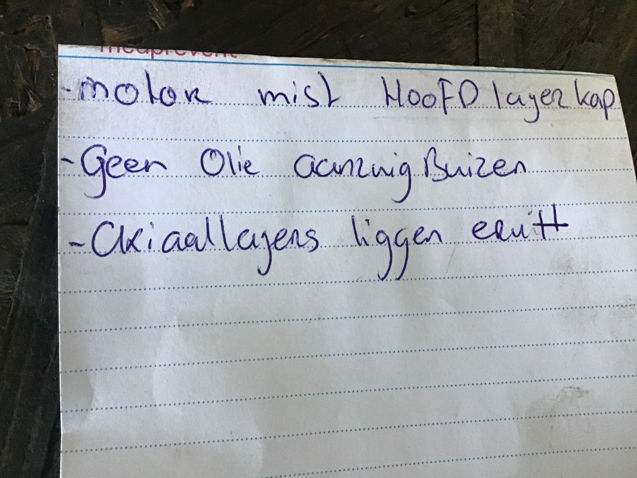 medprevent
- motor mist HOOFD lager kap
- Geen Olie aanzuig Buizen
- Axiaallagers liggen eruit